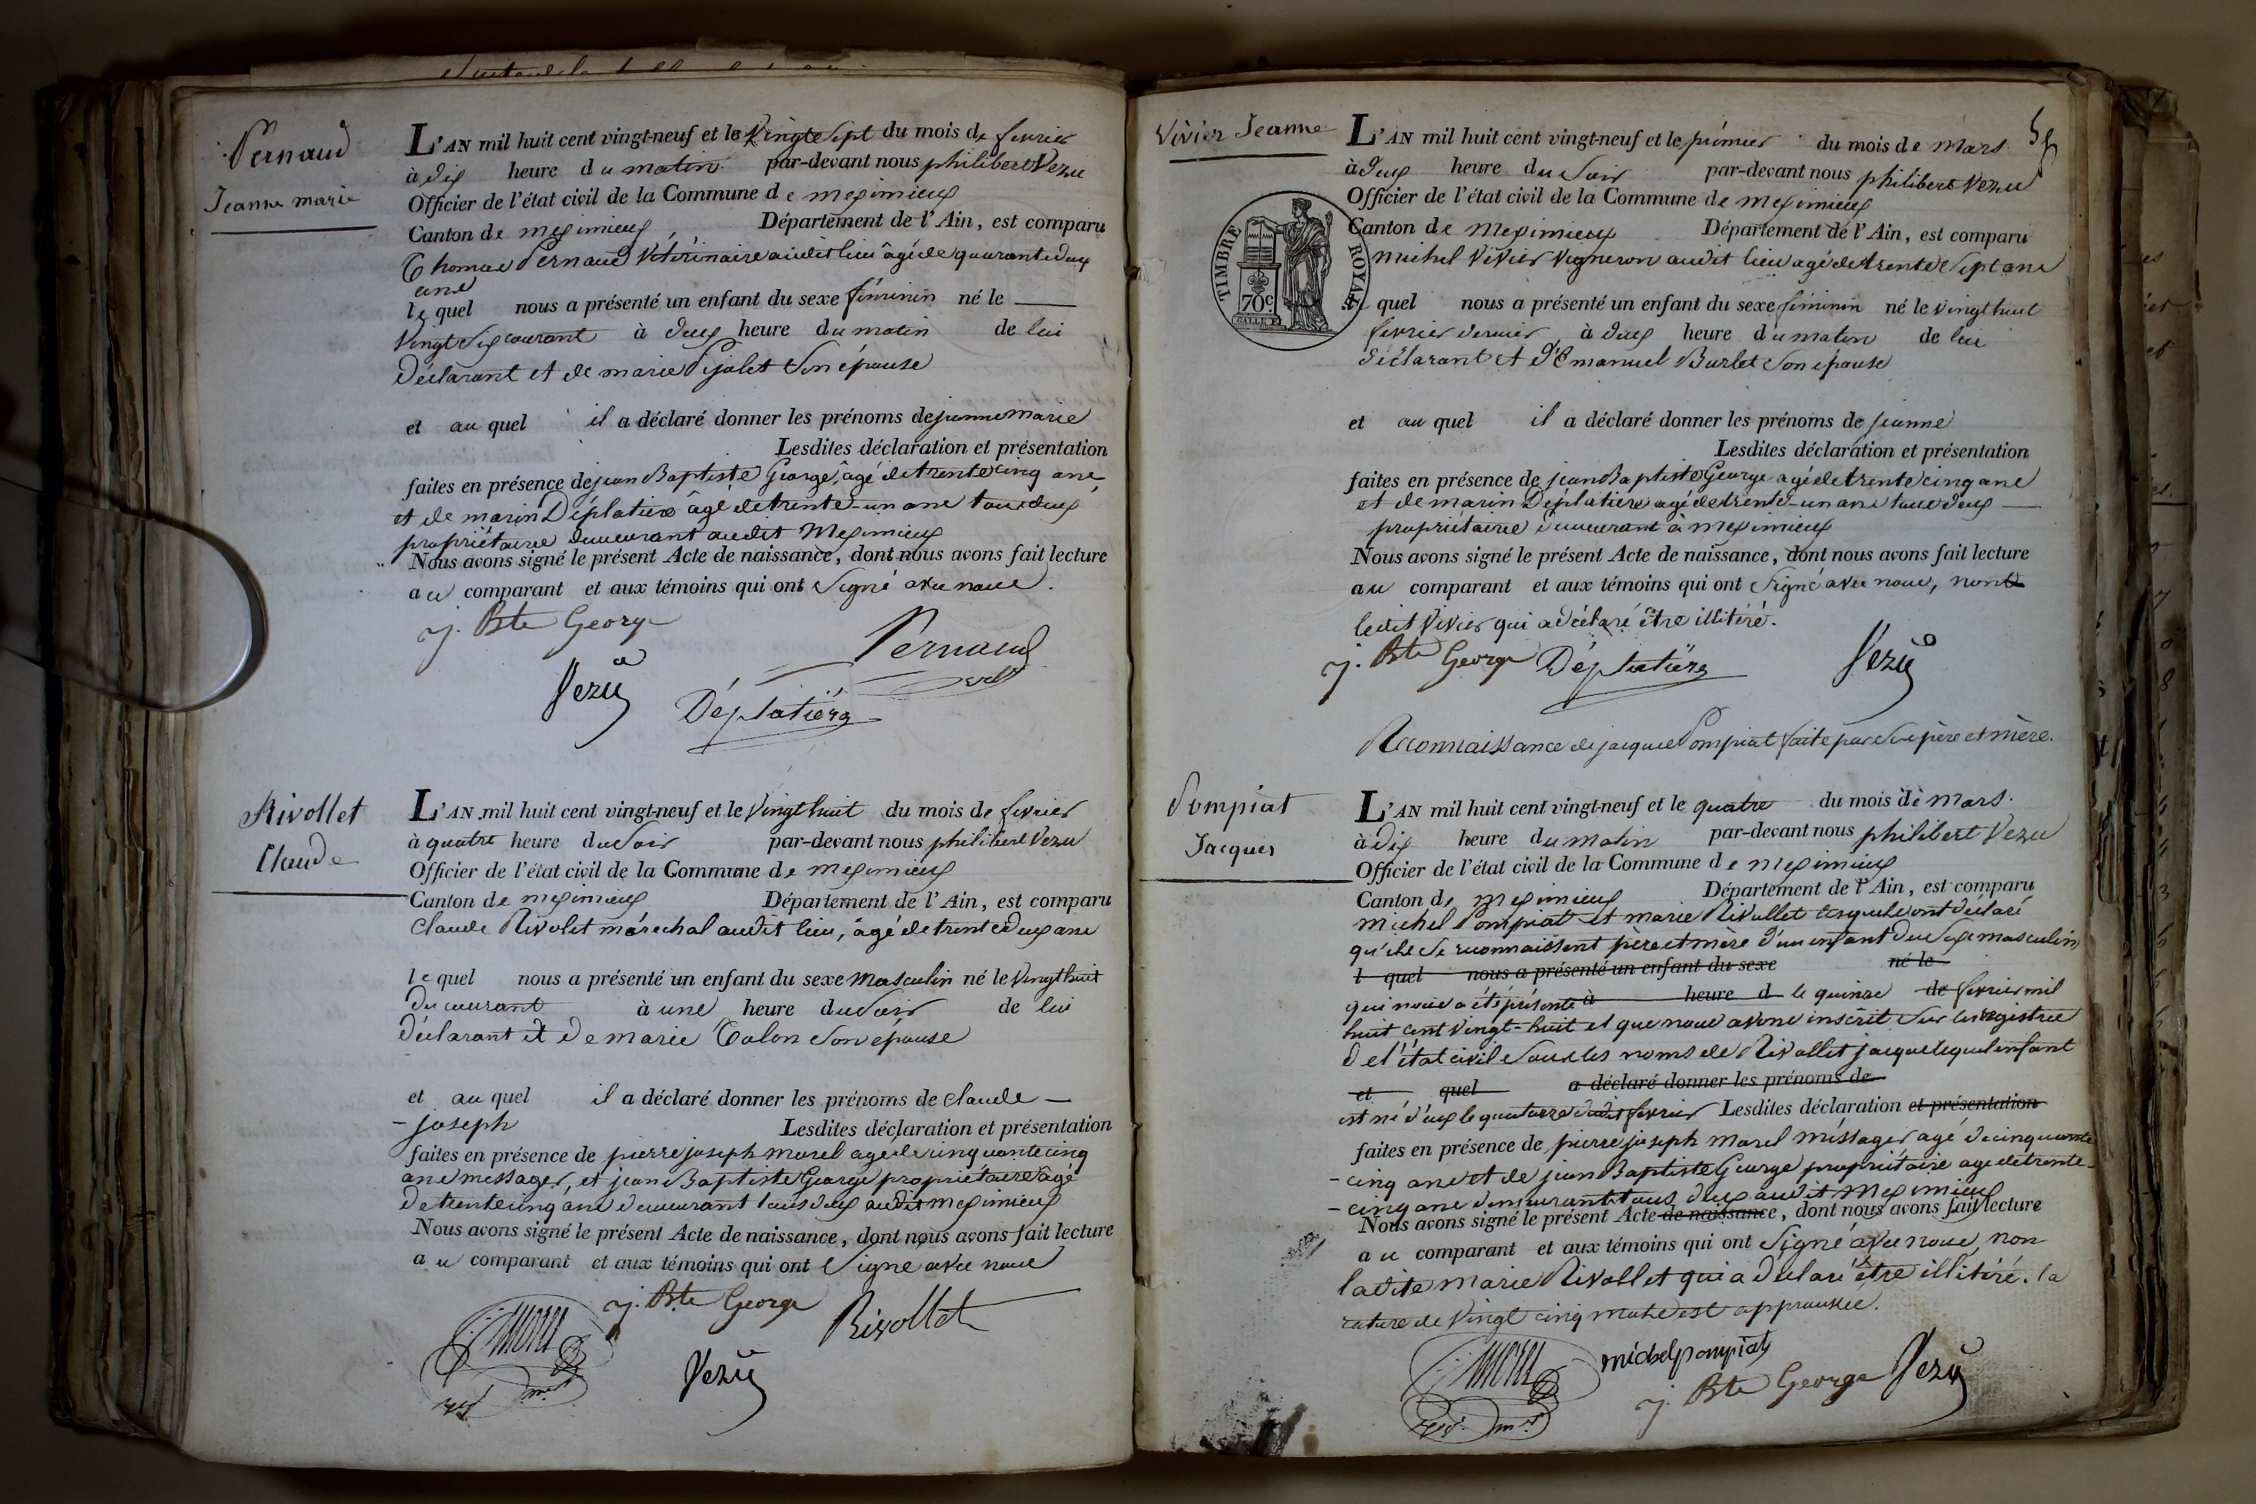 Pernaud
Jeanne marie
L'AN mil huit cent vingt-neuf et le Vingt Sept du mois de fevrier
à dix heure du matin par-devant nous philibert Vezu
Officier de l'état civil de la Commune de meximieux
Canton de meximieux Département de l'Ain, est comparu
Thomas Pernaud Vétérinaire audit lieu âgé de quarante deux
ans
le quel nous a présenté un enfant du sexe féminin né le
Vingt Six courant à deux heure du matin de lui
déclarant et de marie Pijolet Son épouse
et au quel il a déclaré donner les prénoms de jeanne marie
Lesdites déclaration et présentation
faites en présence de jean Baptiste George, âgé de trente cinq ans
et de marin Déplatière âgé de trente-un ans tous deux
propriétaires demeurant audit Meximieux
Nous avons signé le présent Acte de naissance, dont nous avons fait lecture
au comparant et aux témoins qui ont Signé avec nous.
j. Bte George
Pernaud
Vezu
Déplatière
Rivollet
Claude
L'AN mil huit cent vingt-neuf et le Vingt huit du mois de fevrier
à quatre heure du Soir par-devant nous philibert Vezu
Officier de l'état civil de la Commune de meximieux
Canton de meximieux Département de l'Ain, est comparu
Claude Rivolet maréchal audit lieu, âgé de trente deux ans
le quel nous a présenté un enfant du sexe Masculin né le Vingt huit
du courant à une heure du Soir de lui
déclarant et de marie Colon Son épouse
et au quel il a déclaré donner les prénoms de Claude
joseph Lesdites déclaration et présentation
faites en présence de pierre joseph morel agé de cinquante cinq
ans messager, et jean Baptiste George propriétaire âgé
de trente cinq ans demeurant tous deux audit meximieux
Nous avons signé le présent Acte de naissance, dont nous avons fait lecture
au comparant et aux témoins qui ont Signé avec nous
j. Bte George
Rivollet
Vezu
Vivier Jeanne
L'AN mil huit cent vingt-neuf et le prémier du mois de Mars
à deux heure du Soir par-devant nous philibert Vezu
Officier de l'état civil de la Commune de meximieux
Canton de Meximieux Département de l'Ain, est comparu
TIMBRE ROYAL
70c
michel Vivier Vigneron audit lieu agé de trente Sept ans
le quel nous a présenté un enfant du sexe féminin né le Vingt huit
fevrier dernier à deux heure du matin de lui
déclarant et d'Emanuel Burlet Son épouse
et au quel il a déclaré donner les prénoms de jeanne
Lesdites déclaration et présentation
faites en présence de jean Baptiste George agé de trente cinq ans
et de marin Déplatière agé de trente-un ans tous deux
propriétaires demeurant à meximieux
Nous avons signé le présent Acte de naissance, dont nous avons fait lecture
au comparant et aux témoins qui ont Signé avec nous, non
ledit Vivier qui a déclaré être illitéré.
j. Bte George Déplatière Vezu
Reconnaissance de jacques Pompiat faite par Ses père et mère.
Pompiat
Jacques
L'AN mil huit cent vingt-neuf et le quatre du mois de mars.
à dix heure du matin par-devant nous philibert Vezu
Officier de l'état civil de la Commune de meximieux
Canton de meximieux Département de l'Ain, est comparu
michel Pompiat et marie Rivollet lesquels ont déclaré
qu'ils Se reconnaissent père et mère d'un enfant du Sexe masculin
l quel nous a présenté un enfant du sexe né le
qui nous a été présenté à heure d le quinze de fevrier mil
huit cent Vingt-huit et que nous avons inscrit Sur les registres
de l'état civil Sous les noms de Rivollet jacques lequel enfant
et quel a déclaré donner les prénoms de
est né d'eux le quatorze dudit fevrier Lesdites déclaration et présentation
faites en présence de pierre joseph morel méssager agé de cinquante
-cinq ans et de jean Baptiste George propriétaire agé de trente-
-cinq ans demeurant tous deux audit Meximieux
Nous avons signé le présent Acte de naissance, dont nous avons fait lecture
au comparant et aux témoins qui ont Signé avec nous non
ladite marie Rivollet qui a déclaré être illitéré. la
rature de Vingt cinq mots est approuvée.
michel pompiat
j. Bte George Vezu